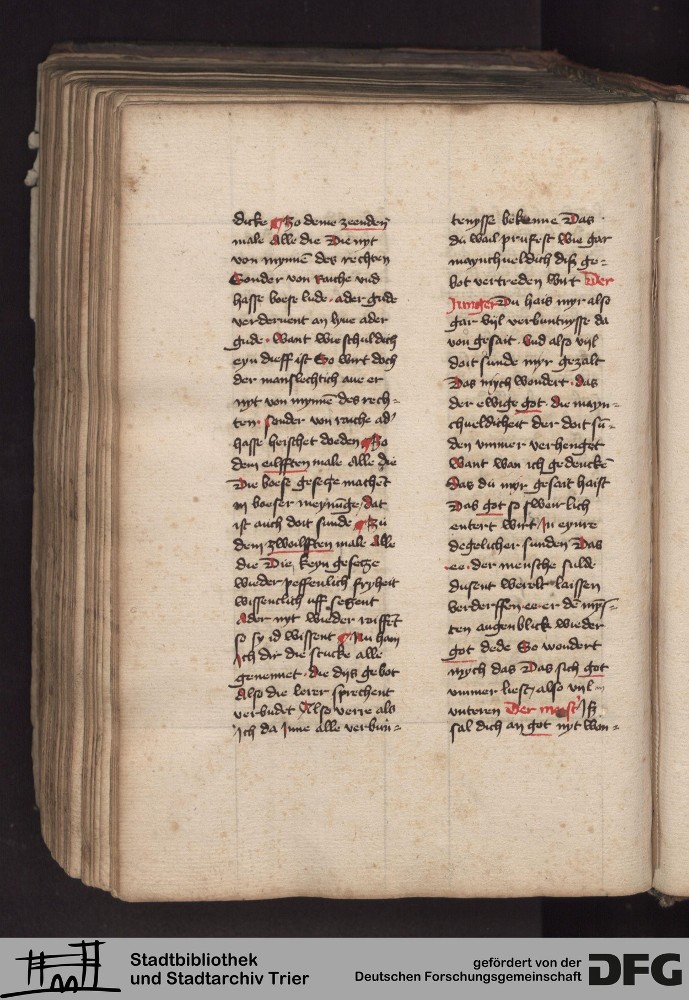 dicke Zo deme zeenden
male Alle die Die nyt
von mynne des rechten
Sonder von rache vnd
hasse boese lude · ader gude
verderuent an lyue ader
gude · want wie schuldich
eyn dieff ist So wirt doch
der manslechtich aue er
nyt von mynne des rech=
ten · sonder von rache ad'
hasse heischet doeden Zo
dem eilfften male Alle die
Die boese gesetze machent
in boeser meynunge / dat
ist auch doit sunde Zu
dem zwoilfften male Alle
die Die keyn gesetze
wieder peffenlich fryheit
wissentlich uff setzent
Ader nyt wieder rüffent
so sy id wissent Nu han
ich dir die stucke alle
genennet · die dijs gebot
Also die lerer sprechent
verbudet Also verre als
ich da jnne alle verbun=
tenysse bekenne Das
du wail prufest wie gar
maynchueldich diß ge=
bot vertreden wirt Der
Junger Du hais myr also
gar vijl verbuntnysse da
von gesait · Vnd also vijl
doit sunde myr gezalt
Das mych wondert · das
der ewige got · die mayn=
chueldicheit der doit su=
den vmmer verhenget
Want wan ich gedencke
das du myr gesait haist
Das got so sweirlich
entert wirt / Jn eynre
degelicher sunden Das
ee · der mensche sulde
dusent werelt laissen
verderffen ee er de mys=
ten augenblick wieder
got dede So wondert
mych das Das sich got
vmmer liest / also vijl
vnteren Der meist' Jß
sal dich an got nyt won=
Stadtbibliothek
und Stadtarchiv Trier
gefördert von der
Deutschen Forschungsgemeinschaft
DFG